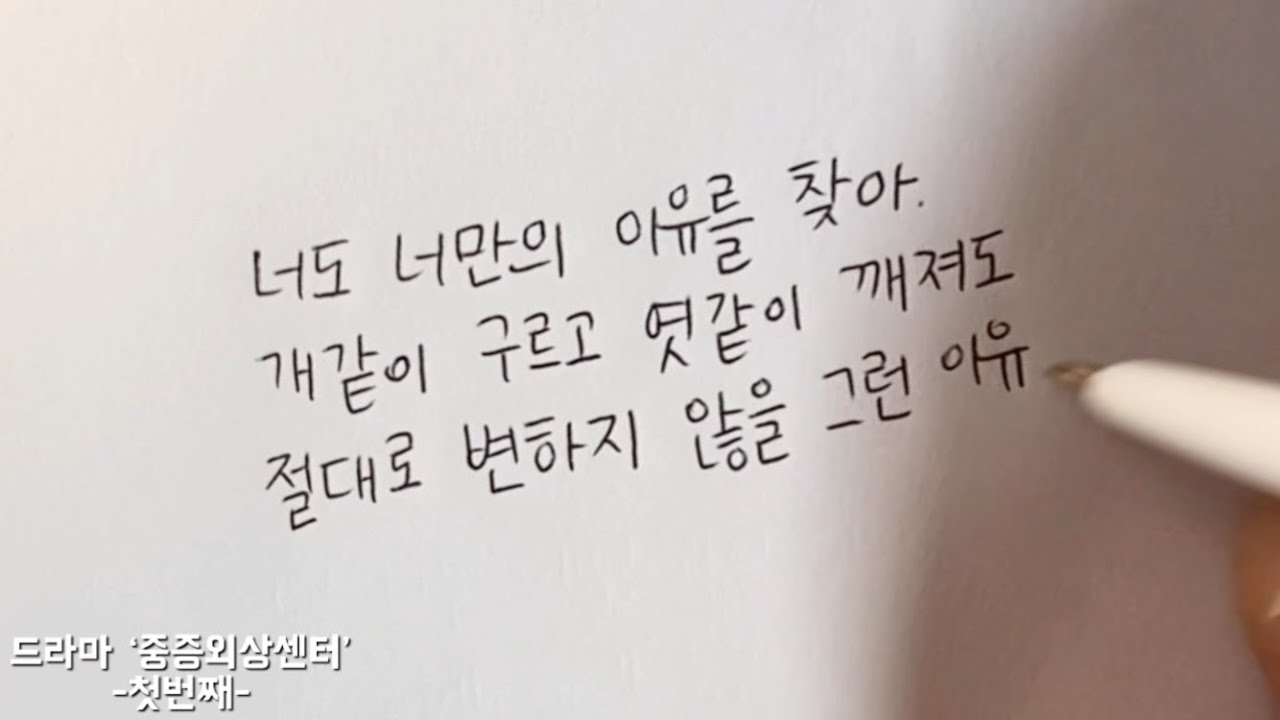 너도 너만의 이유를 찾아.
개같이 구르고 엿같이 깨져도
절대로 변하지 않을 그런 이유
드라마 ‘중증외상센터’
-첫번째-